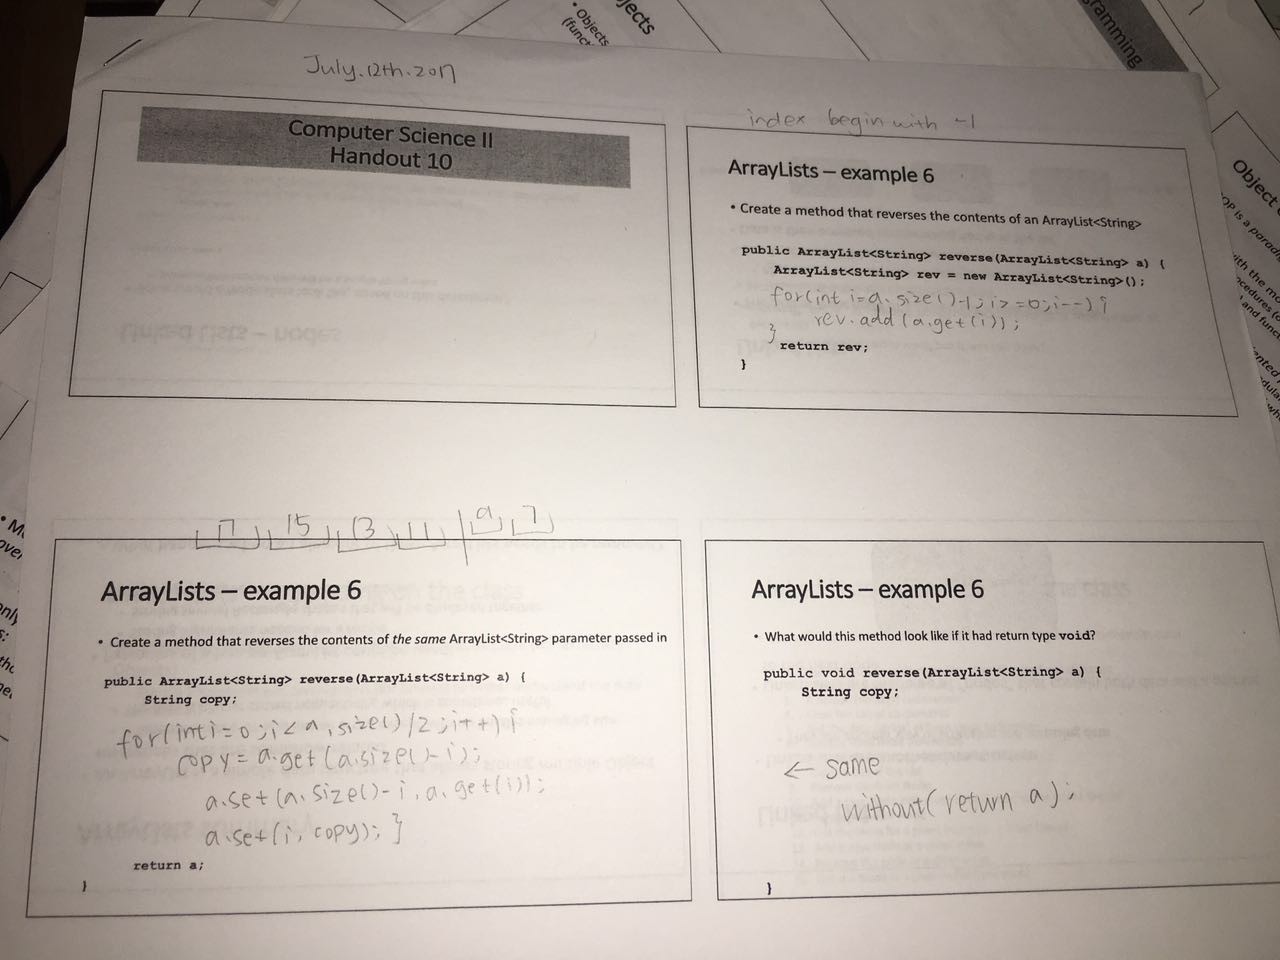 July.12th.2017
Computer Science II
Handout 10
index begin with -1
ArrayLists – example 6
• Create a method that reverses the contents of an ArrayList<String>
public ArrayList<String> reverse(ArrayList<String> a) {
ArrayList<String> rev = new ArrayList<String>();
for(int i=a.size()-1;i>=0;i--){
rev.add(a.get(i));
}
return rev;
}
17 15 13 11 9 7
ArrayLists – example 6
• Create a method that reverses the contents of the same ArrayList<String> parameter passed in
public ArrayList<String> reverse(ArrayList<String> a) {
String copy;
for(int i=0;i<a.size()/2;i++){
copy=a.get(a.size()-i);
a.set(a.size()-i,a.get(i));
a.set(i,copy);}
return a;
}
ArrayLists – example 6
• What would this method look like if it had return type void?
public void reverse(ArrayList<String> a) {
String copy;
← same
without(return a);
}
• Objects
(funct
jects
ramming
Object
OP is a paradi